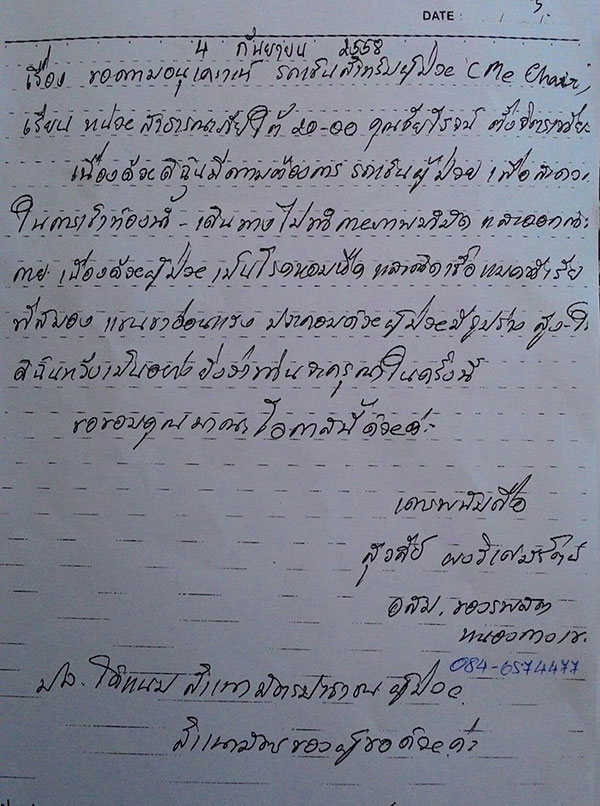 DATE : / /
4 กันยายน 2558
เรื่อง ขอความอนุเคราะห์ รถเข็นสำหรับผู้ป่วย
เรียน หน่วย สาธารณภัยใต้ 20-00 คุณชัยโรจน์
เนื่องด้วยดิฉันมีความต้องการ รถเข็นผู้ป่วย เพื่อสะดวก
ในการเข้าห้องน้ำ - เดินทางไปทำกายภาพบำบัด และออกกำลัง
กาย เนื่องด้วยผู้ป่วย เป็นโรคหอบหืด และติดเชื้อแบคทีเรีย
ที่สมอง แขนขาอ่อนแรง ประกอบด้วยผู้ป่วยมีรูปร่าง สูง-ใ
ดิฉันหวังเป็นอย่างยิ่งว่าท่านจะกรุณาในครั้งนี้
ขอขอบคุณมาณะโอกาสนี้ด้วยค่ะ
เคารพนับถือ
อสม.
084-6574477
ปล. ได้แนบ สำเนาบัตรประชาชนผู้ป่วย
สำเนาบัตรของผู้ขอด้วยค่ะ